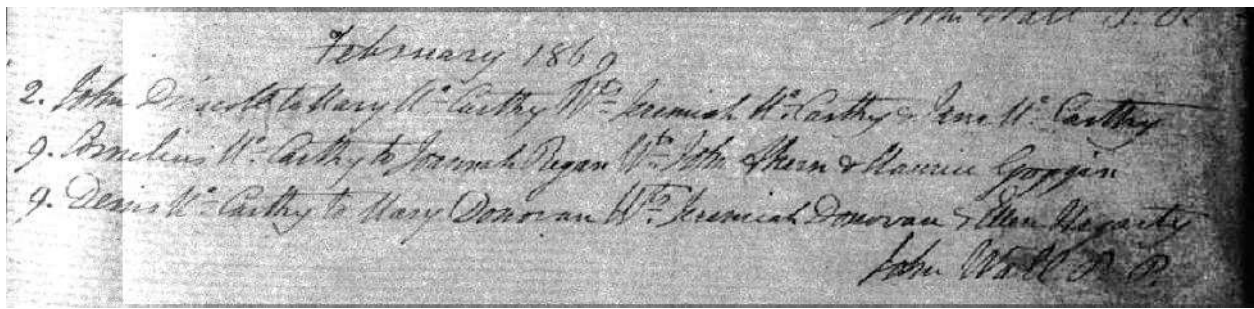 John Wall P. P.
February 1869
2. John Driscoll to Mary Mc Carthy Wts Jeremiah Mc Carthy & Jane Mc Carthy
9. Cornelius Mc Carthy to Joannah Regan Wts John Ahern & Maurice Goggin
9. Denis Mc Carthy to Mary Donovan Wts Jeremiah Donovan & Ellen Hegarty
John Wall P. P.